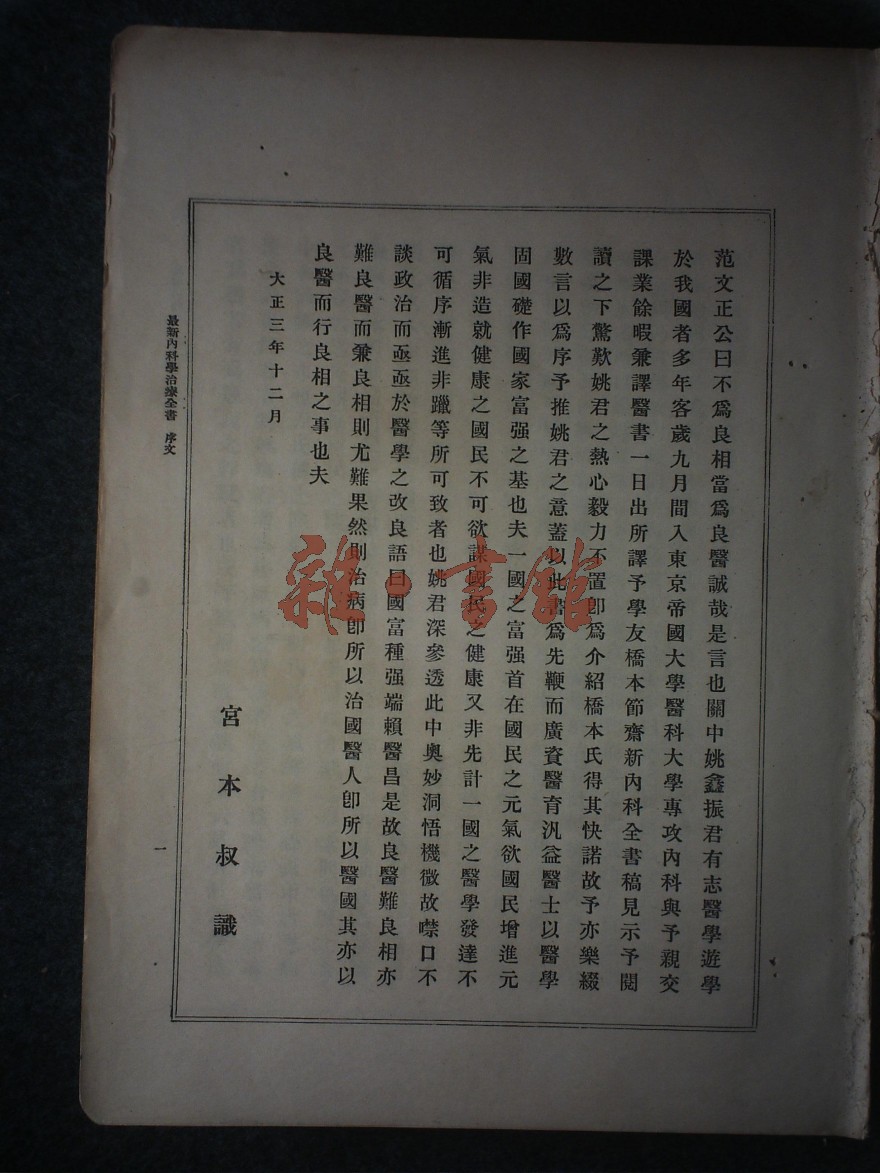 范文正公曰不爲良相當爲良醫誠哉是言也關中姚鑫振君有志醫學遊學
於我國者多年客歲九月間入東京帝國大學醫科大學專攻內科與予親交
課業餘暇兼譯醫書一日出所譯予學友橋本節齋新內科全書稿見示予閱
讀之下驚歎姚君之熱心毅力不置卽爲介紹橋本氏得其快諾故予亦樂綴
數言以爲序予推姚君之意蓋以此書爲先鞭而廣資醫育汎益醫士以醫學
固國礎作國家富强之基也夫一國之富强首在國民之元氣欲國民增進元
氣非造就健康之國民不可欲謀國民之健康又非先計一國之醫學發達不
可循序漸進非躐等所可致者也姚君深參透此中奧妙洞悟機微故噤口不
談政治而亟亟於醫學之改良語曰國富種强端賴醫昌是故良醫難良相亦
難良醫而兼良相則尤難果然則治病卽所以治國醫人卽所以醫國其亦以
良醫而行良相之事也夫
大正三年十二月
宮本叔識
最新內科學治療全書 序文
一
雜·書館